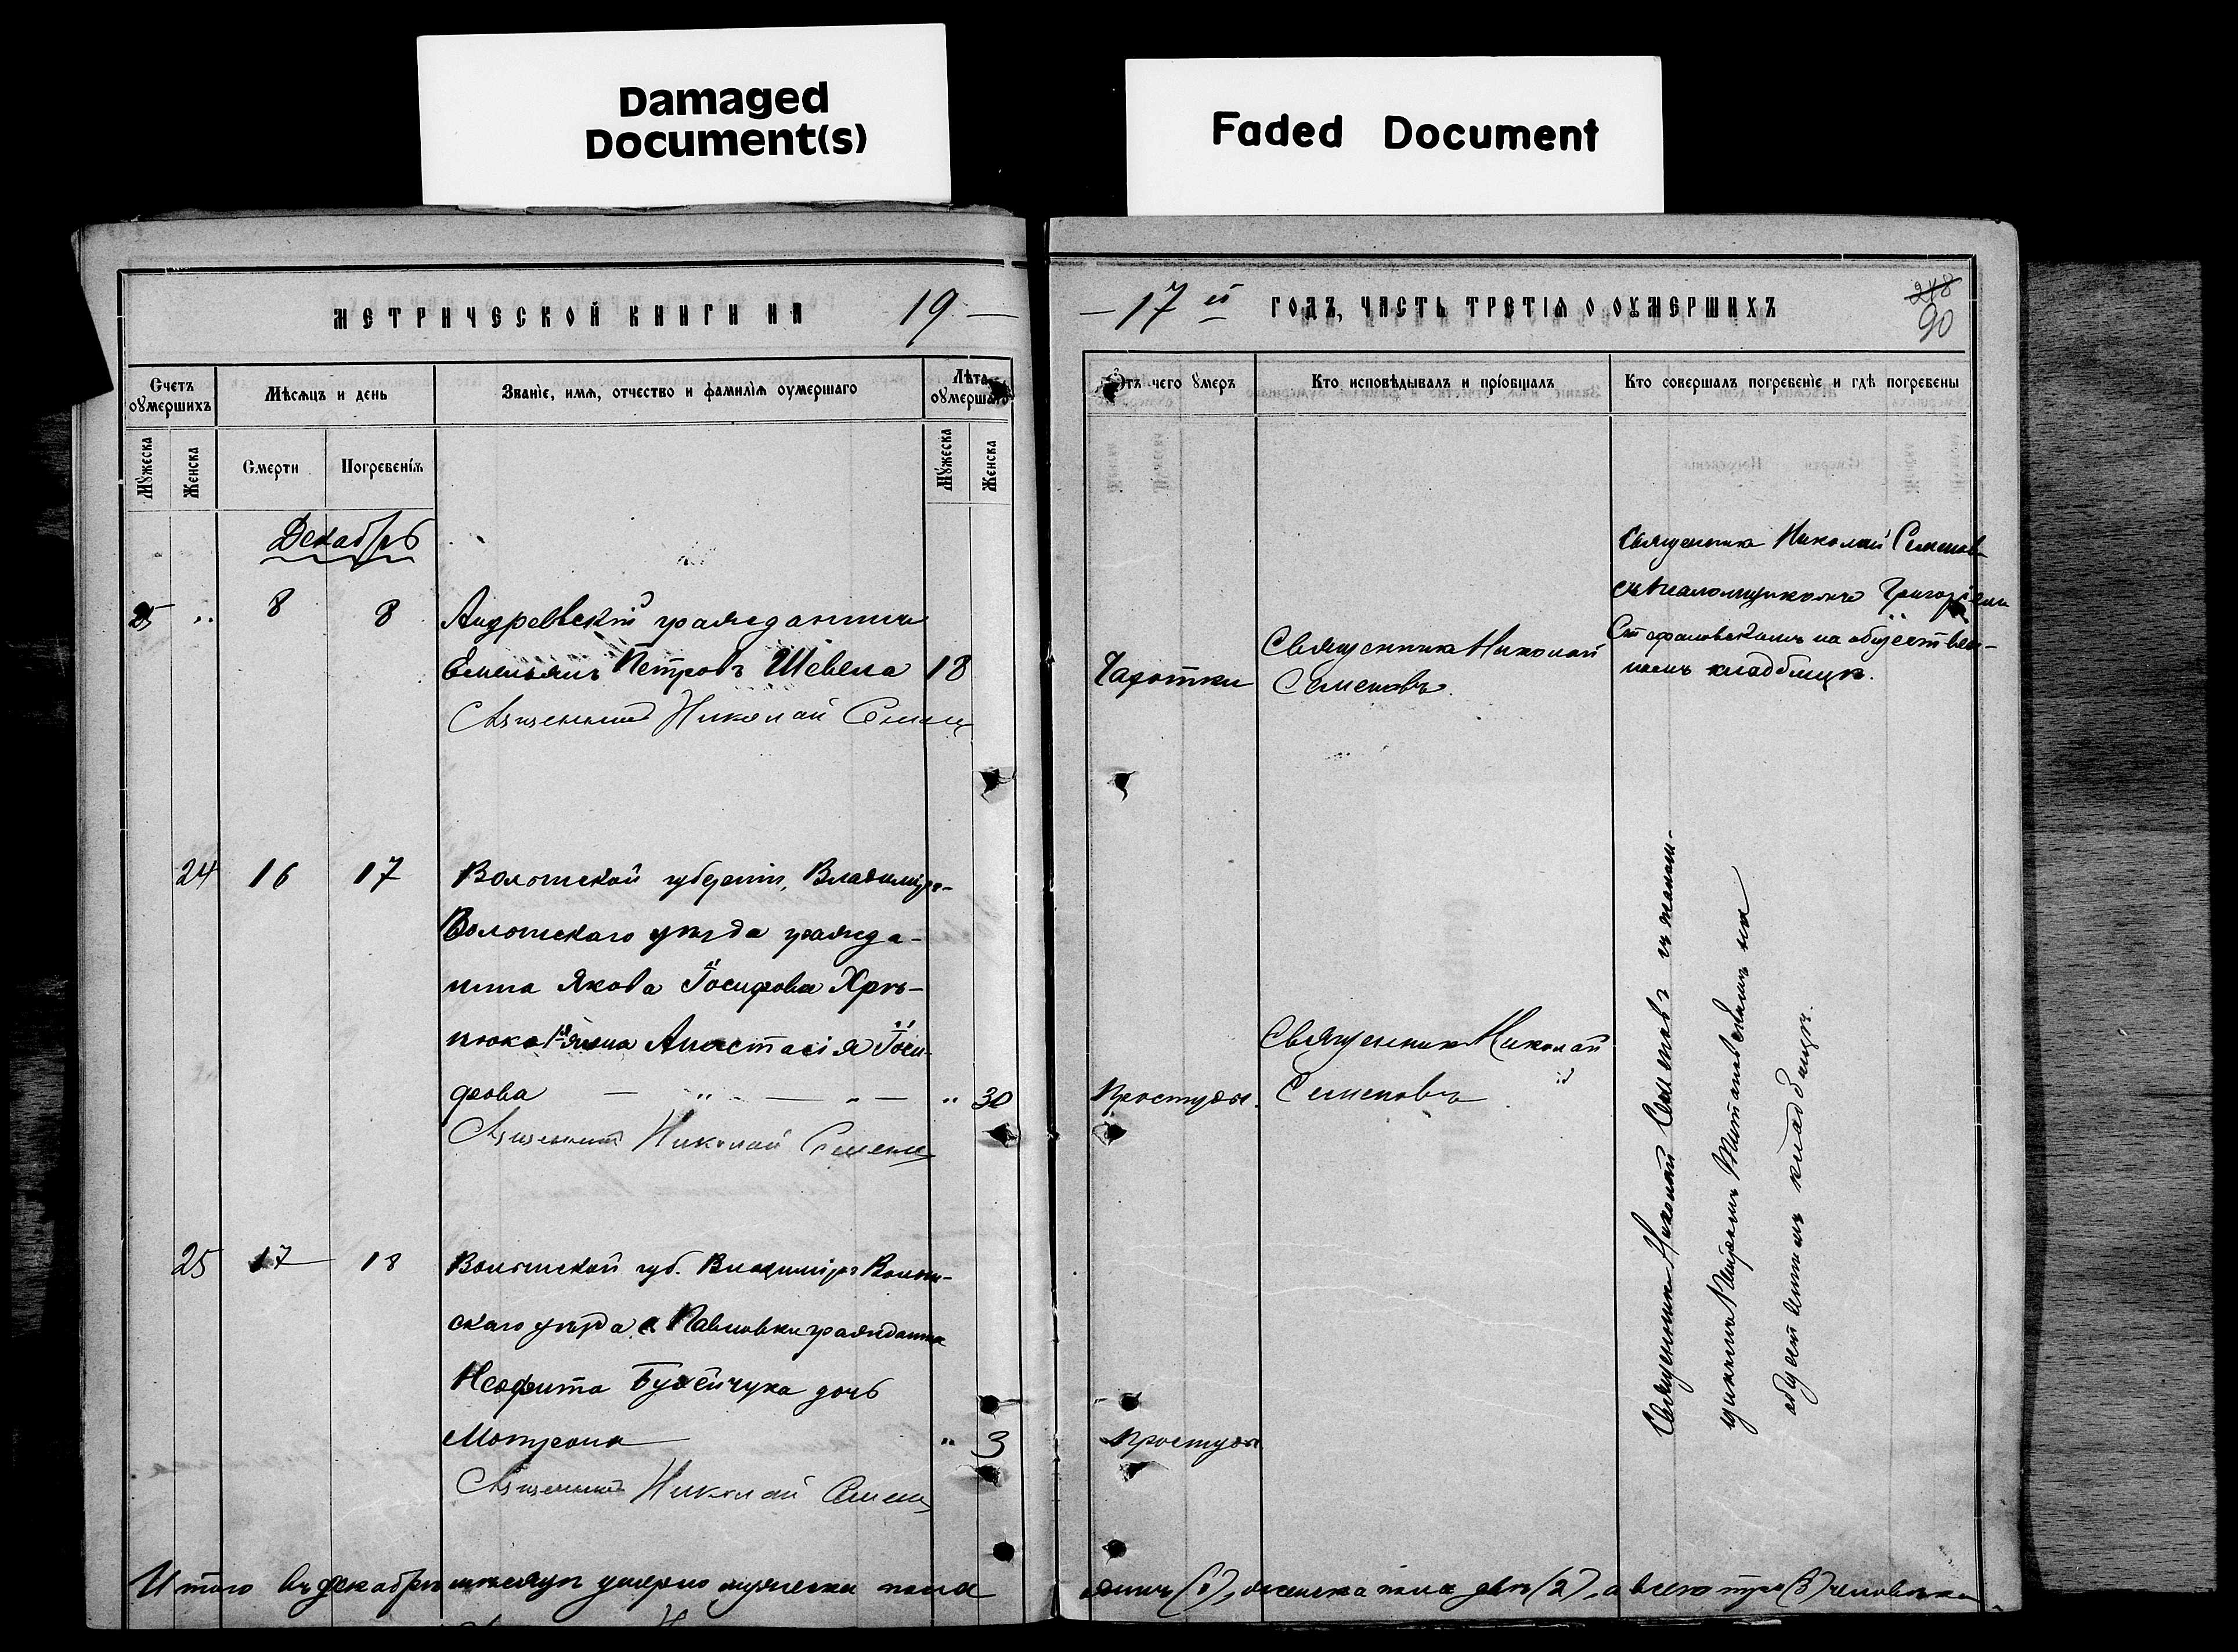 Damaged
Document(s)
Faded Document
МЕТРИЧЕСКОЙ КНИГИ НА 19
17 й ГОДЪ, ЧАСТЬ ТРЕТІЯ О ОУМЕРШИХЪ
248
90
Счетъ оумершихъ
Мѣсяцъ и день
Званіе, имя, отчество и фамилія оумершаго
Лѣта оумершаго
Отъ чего умеръ
Кто исповѣдывалъ и пріобщалъ
Кто совершалъ погребеніе и гдѣ погребены
Мужеска
Женска
Смерти
Погребенія
Мужеска
Женска
Декабрь
8 8
Андреевскій гражданинъ
Емельянъ Петровъ Шевела 18
Священникъ Николай Семеновъ
Чахотки
Священникъ Николай
Семеновъ.
Священникъ Николай Семеновъ
съ псаломщикомъ Григоріемъ
Стефановскимъ на обществен-
номъ кладбищѣ.
24 16 17
Волынской губерніи, Владиміръ-
Волынскаго уѣзда гражда-
нина Якова Іосифова Хрѣ-
нюка жена Анастасія Іоси-
фова " 30
Священникъ Николай Семеновъ
Простуды.
Священникъ Николай
Семеновъ
25 17 18
Волынской губ. Владиміръ Волын-
скаго уѣзда с. Павловки гражданина
Неофита Бухейчука дочь
Мотрона " 3
Священникъ Николай Семеновъ
Простуды.
Священникъ Николай Семеновъ съ псалом-
щикомъ на
общественномъ кладбищѣ.
Итого въ декабрѣ мѣсяцѣ умерло мужеска пола
одинъ (1), женска пола двѣ (2), а всего три (3) человѣка